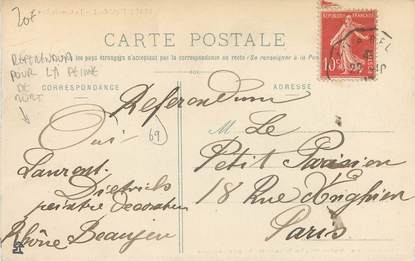 20€
REFERENDUM
POUR LA PEINE
DE
MORT
CARTE POSTALE
les pays étrangers n'acceptent pas la correspondance au recto (Se renseigner à la Poste
CORRESPONDANCE
ADRESSE
REPUBLIQUE FRANÇAISE
10
Referendum
Oui
69
Laurent
peintre Decorateur
Rhône Beaujeu
M Le
Petit Parisien
18 Rue Enghien
Paris